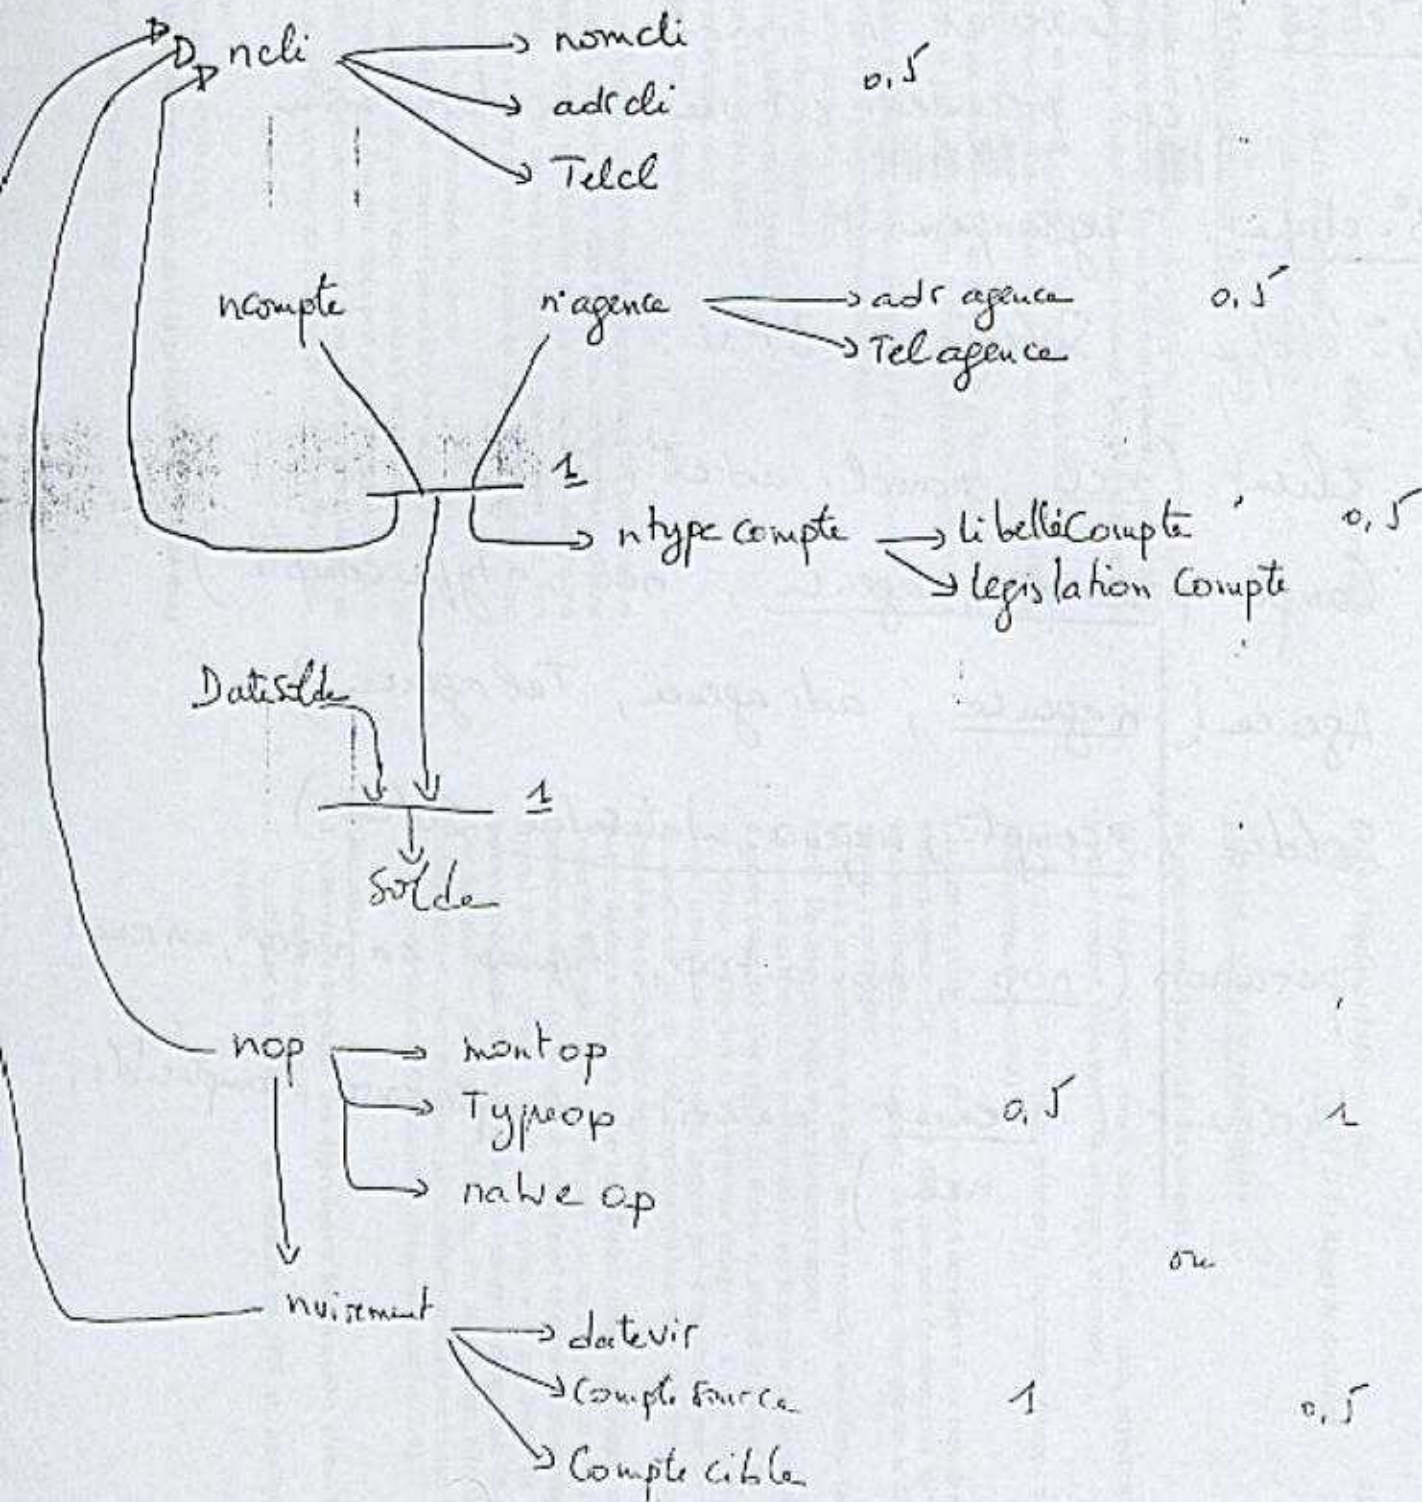 ncli nomcli 0,5
adrcli
Telcl
ncompte n°agence adr agence 0,5
Tel agence
1
ntype compte libelléCompte 0,5
législation Compte
Datesolde
1
solde
nop montop
Typeop 0,5 1
op
ou
datevir
Compte source 1 0,5
Compte cible